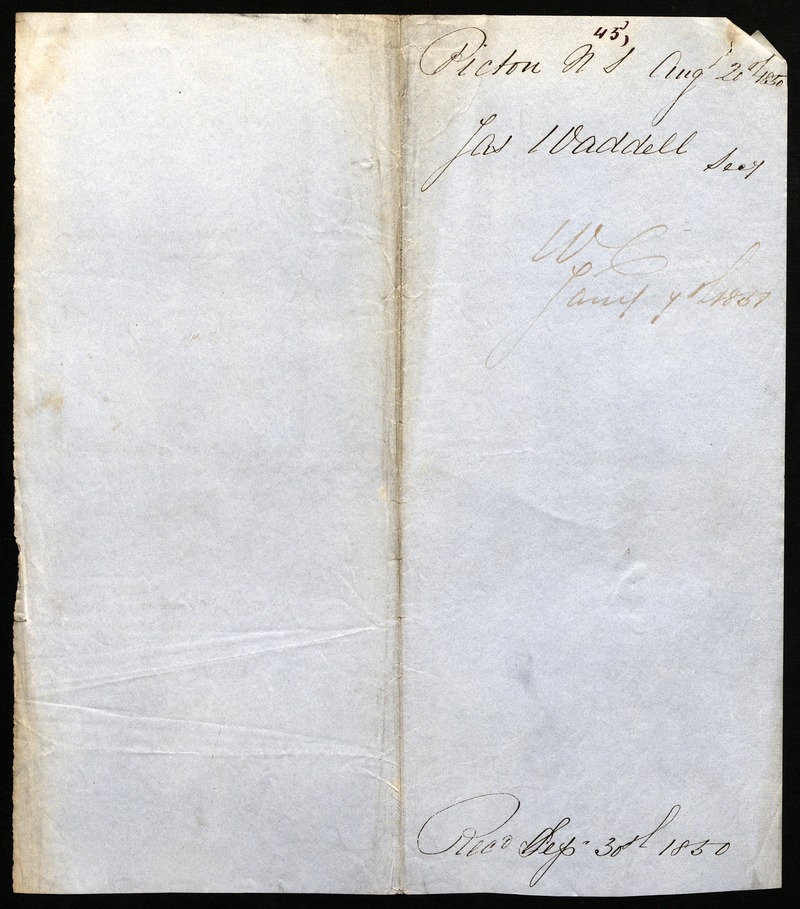 45,
Picton N S Augt 20th 1850
Jas Waddell
Secy
W C
Jany 7th 1851
Recd Sep 30th 1850